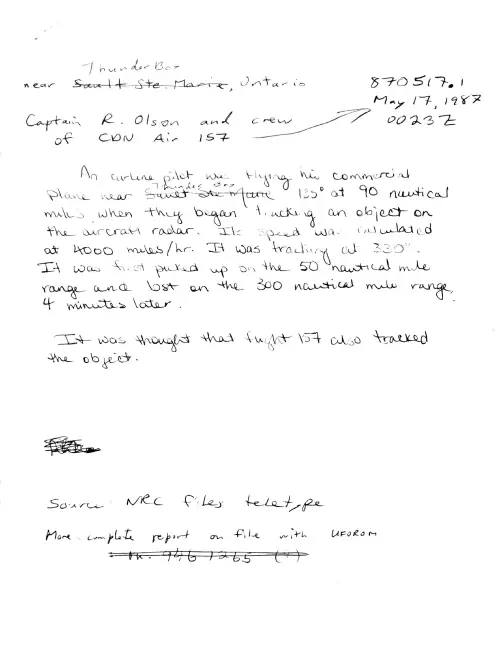 Thunder Bay
near Sault Ste. Marie, Ontario
870517.1
May 17, 1987
0023Z
Captain R. Olson and crew
of CDN Air 157
An airline pilot was flying his commercial
Thunder Bay
plane near Sault Ste Marie 135° at 90 nautical
miles when they began tracking an object on
the aircraft radar. Its speed was calculated
at 4000 miles/hr. It was tracking at 330°.
It was first picked up on the 50 nautical mile
range and lost on the 300 nautical mile range,
4 minutes later.
It was thought that flight 157 also tracked
the object.
Source: NRC files teletype
More complete report on file with UFOROM